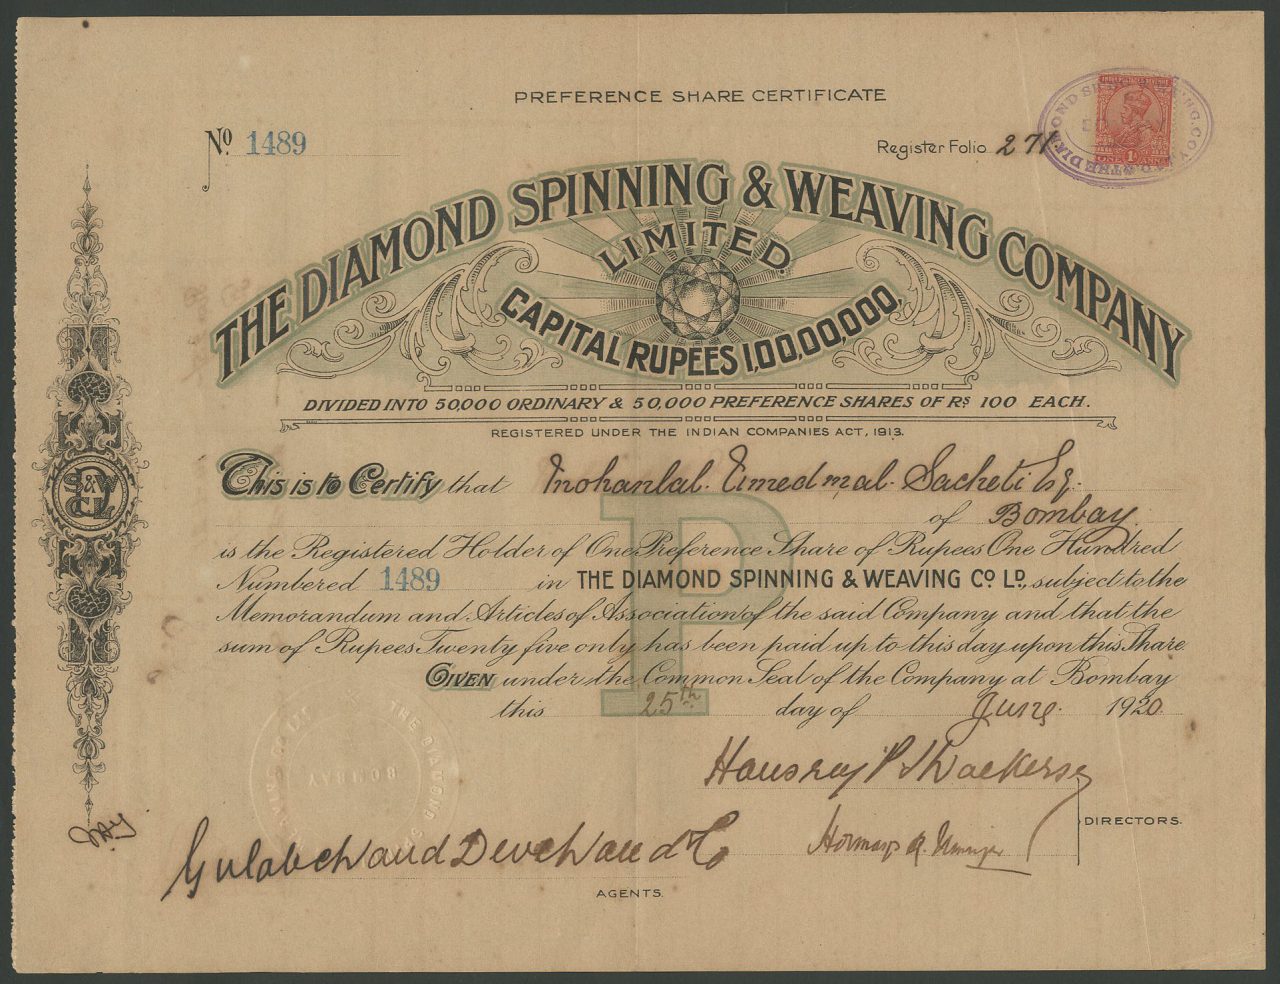 PREFERENCE SHARE CERTIFICATE
No 1489
Register Folio 271
ONE 1 ANNA
THE DIAMOND SPINNING & WEAVING COMPANY
LIMITED.
CAPITAL RUPEES 1,00,00,000,
DIVIDED INTO 50,000 ORDINARY & 50,000 PREFERENCE SHARES OF Rs 100 EACH.
REGISTERED UNDER THE INDIAN COMPANIES ACT, 1913.
This is to Certify that Mohanlal Umedmal Sacheti Esq.
of Bombay
is the Registered Holder of One Preference Share of Rupees One Hundred
Numbered 1489 in THE DIAMOND SPINNING & WEAVING Co Ld, subject to the
Memorandum and Articles of Association of the said Company and that the
sum of Rupees Twenty five only has been paid up to this day upon this Share
GIVEN under the Common Seal of the Company at Bombay
this 25th day of June 1920
P
DIRECTORS.
Gulabchand Devchand & Co
AGENTS.
BOMBAY